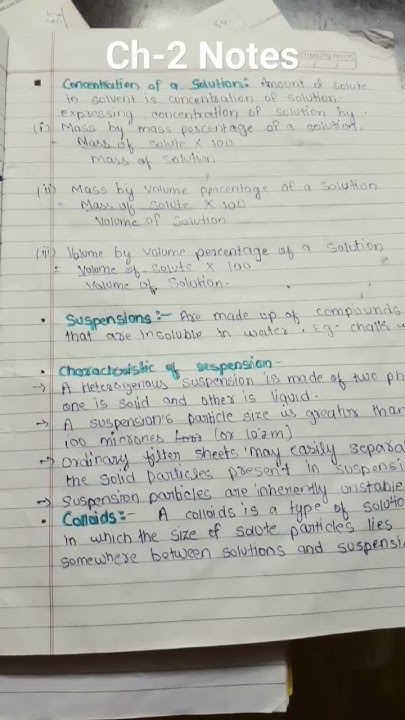 Ch-2 Notes
Concentration of a Solution:- Amount of solute
in solvent is concentration of solution.
Expressing concentration of solution by.
(i) Mass by mass percentage of a solution.
= Mass of solute X 100
Mass of Solution
(ii) Mass by Volume percentage of a Solution
= Mass of Solute X 100
Volume of Solution
(iii) Volume by Volume percentage of a Solution
= Volume of Solute X 100
Volume of Solution.
• Suspensions:- Are made up of compounds
that are insoluble in water. Eg- chalk
• Characteristic of suspension-
→ A Heterogenous suspension is made of two
one is solid and other is liquid.
→ A suspension's particle size is greater than
100 micrones (or
→ Ordinary filter sheets may easily
the solid particles present in
→ Suspension particles are inherently unstable
• Colloids:- A colloids is a type of
in which the size of solute particles lies
somewhere between solutions and